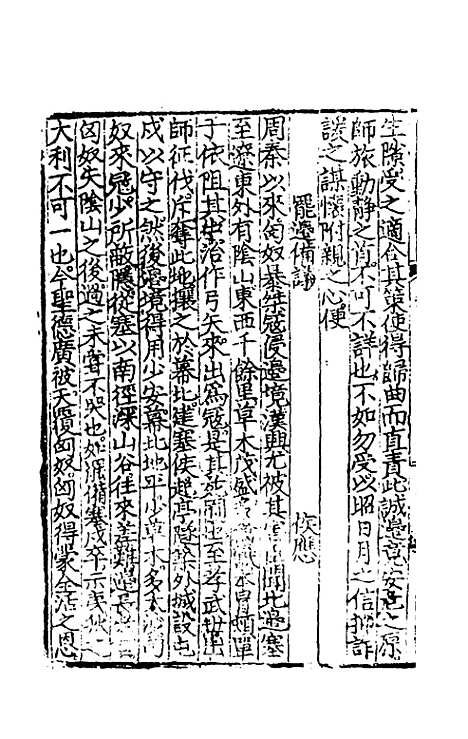 生隙受之適合其策使得歸曲而直責此誠邊竟安危之原
師旅動靜之首不可不詳也不如勿受以昭日月之信抑詐
諼之謀懷附親之心便
罷邊備議 侯應
周秦以來匈奴暴桀冦侵邊境漢興尤被其害聞北邊塞
至遼東外有陰山東西千餘里草木茂盛多本冒頓單
于依阻其中治作弓矢來出為冦是其苑囿也至孝武世出
師征伐斥奪此地攘之於幕北建塞徼起亭隧築外城設屯
戍以守之然後邊境得用少安幕北地平少草木多大沙匈
奴來冦少所蔽隱從塞以南徑深山谷往來差難邊長老
匈奴失陰山之後過之未嘗不哭也如罷備塞戍卒示夷狄之
大利不可一也今聖德廣被天覆匈奴匈奴得蒙全活之恩